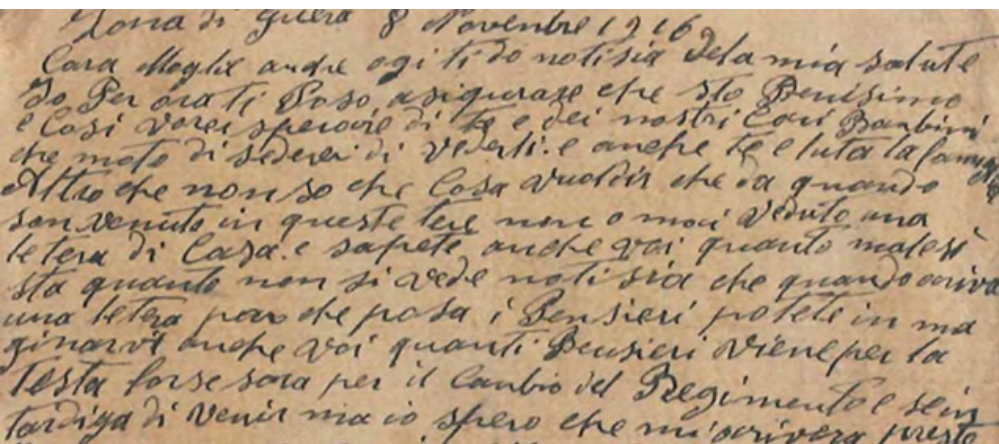 Zona di guera 8 Novenbre 1916
Cara Moglie anche ogi ti do notisia dela mia salute
Io Per ora ti Poso asigurare che sto Benisimo
e Cosi vorei sperare di te e dei nostri Cari Banbini
che moto di sederei di vederli e anche te e tuta la famiglia
Altro che non so che Cosa vuoldir che da quando
son venuto in queste tere non o mai veduto una
letera di Casa e sapete anche voi quanto male si
sta quanto non si vede notisia che quando ariva
una letera pare che pasa i Pensieri potete in ma
ginarvi anche voi quanti Pensieri viene per la
testa forse sara per il Canbio del Regimento e sein
tardiga di venir ma io spero che mi arivera presto